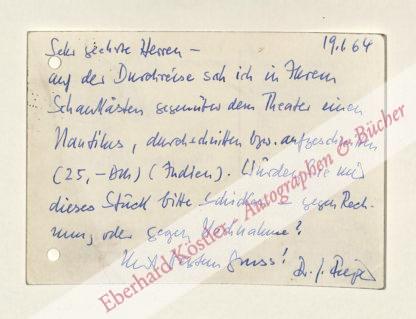 19.1.64
Sehr geehrte Herren –
auf der Durchreise sah ich in Ihrem
Schaukästen gegenüber dem Theater einen
Nautilus, durchschnitten bzw. aufgeschnitten
(25,- DM) (Indien). Würden Sie mir
dieses Stück bitte schicken – gegen Rech-
nung, oder gegen Nachnahme?
Mit bestem Gruss! Dr. J.
Eberhard Köstler - Autographen & Bücher